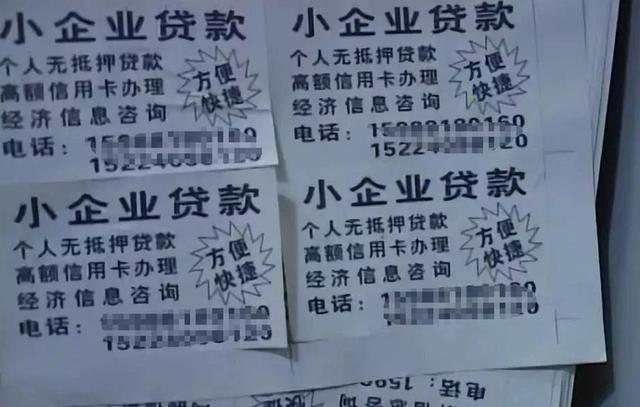 小企业贷款
个人无抵押贷款
高额信用卡办理
经济信息咨询
方便
快捷
电话：
小企业贷款
个人无抵押贷款
高额信用卡办理
经济信息咨询
方便
快捷
电话：
小企业贷款
个人无抵押贷款
高额信用卡办理
经济信息咨询
方便
快捷
电话：
小企业贷款
个人无抵押贷款
高额信用卡办理
经济信息咨询
方便
快捷
电话：